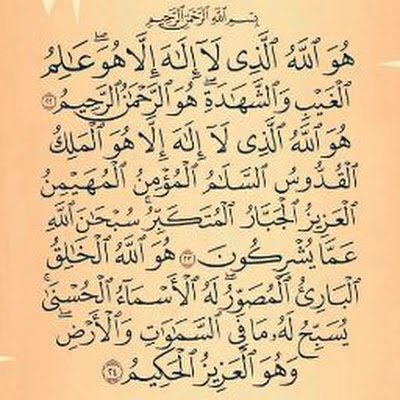 بِسْمِ اللَّهِ الرَّحْمَٰنِ الرَّحِيمِ
هُوَ اللَّهُ الَّذِي لَا إِلَٰهَ إِلَّا هُوَ ۖ عَالِمُ
الْغَيْبِ وَالشَّهَادَةِ ۖ هُوَ الرَّحْمَٰنُ الرَّحِيمُ ٢٢
هُوَ اللَّهُ الَّذِي لَا إِلَٰهَ إِلَّا هُوَ الْمَلِكُ
الْقُدُّوسُ السَّلَامُ الْمُؤْمِنُ الْمُهَيْمِنُ
الْعَزِيزُ الْجَبَّارُ الْمُتَكَبِّرُ ۚ سُبْحَانَ اللَّهِ
عَمَّا يُشْرِكُونَ ٢٣ هُوَ اللَّهُ الْخَالِقُ
الْبَارِئُ الْمُصَوِّرُ ۖ لَهُ الْأَسْمَاءُ الْحُسْنَىٰ ۚ
يُسَبِّحُ لَهُ مَا فِي السَّمَاوَاتِ وَالْأَرْضِ ۖ
وَهُوَ الْعَزِيزُ الْحَكِيمُ ٢٤